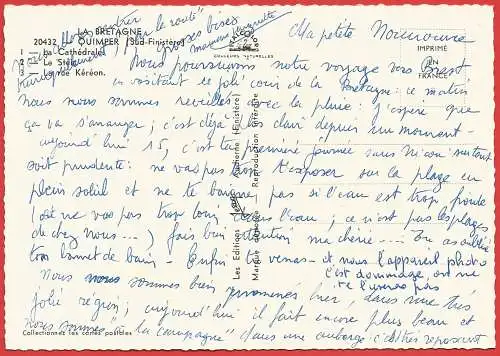 LA BRETAGNE
20432 QUIMPER (Sud-Finistère)
1 — La Cathédrale
2 — Le Stéir
3 — La rue Kéréon.
COULEURS NATURELLES
IMPRIMÉ
EN
FRANCE
la route"
grosses bises
Ma petite
Nous poursuivons notre voyage vers Brest
en visitant ce joli coin de la Bretagne: ce matin
nous nous sommes réveillés avec la pluie: j'espère que
ça va s'arranger, c'est déjà plus clair depuis un moment-
aujourd'hui 15, c'est ta première journée sans Nicou: surtout
soit prudente: ne vas pas trop t'exposer sur la plage en
plein soleil et ne te baignes pas si l'eau est trop froide
(et ne vas pas trop loin dans l'eau, ce n'est pas les plages
de chez nous—) fais bien attention ma chérie— Tu as oublié
ton bonnet de bain— Enfin tu verras— et nous l'appareil photo
c'est dommage, on ne
Nous nous sommes bien promenés hier, dans une très
jolie région; aujourd'hui il fait encore plus beau et
nous sommes "à la campagne" dans une auberge
Les Editions
Marque déposée
Reproduction interdite
(Finistère)
Collectionnez les cartes postales